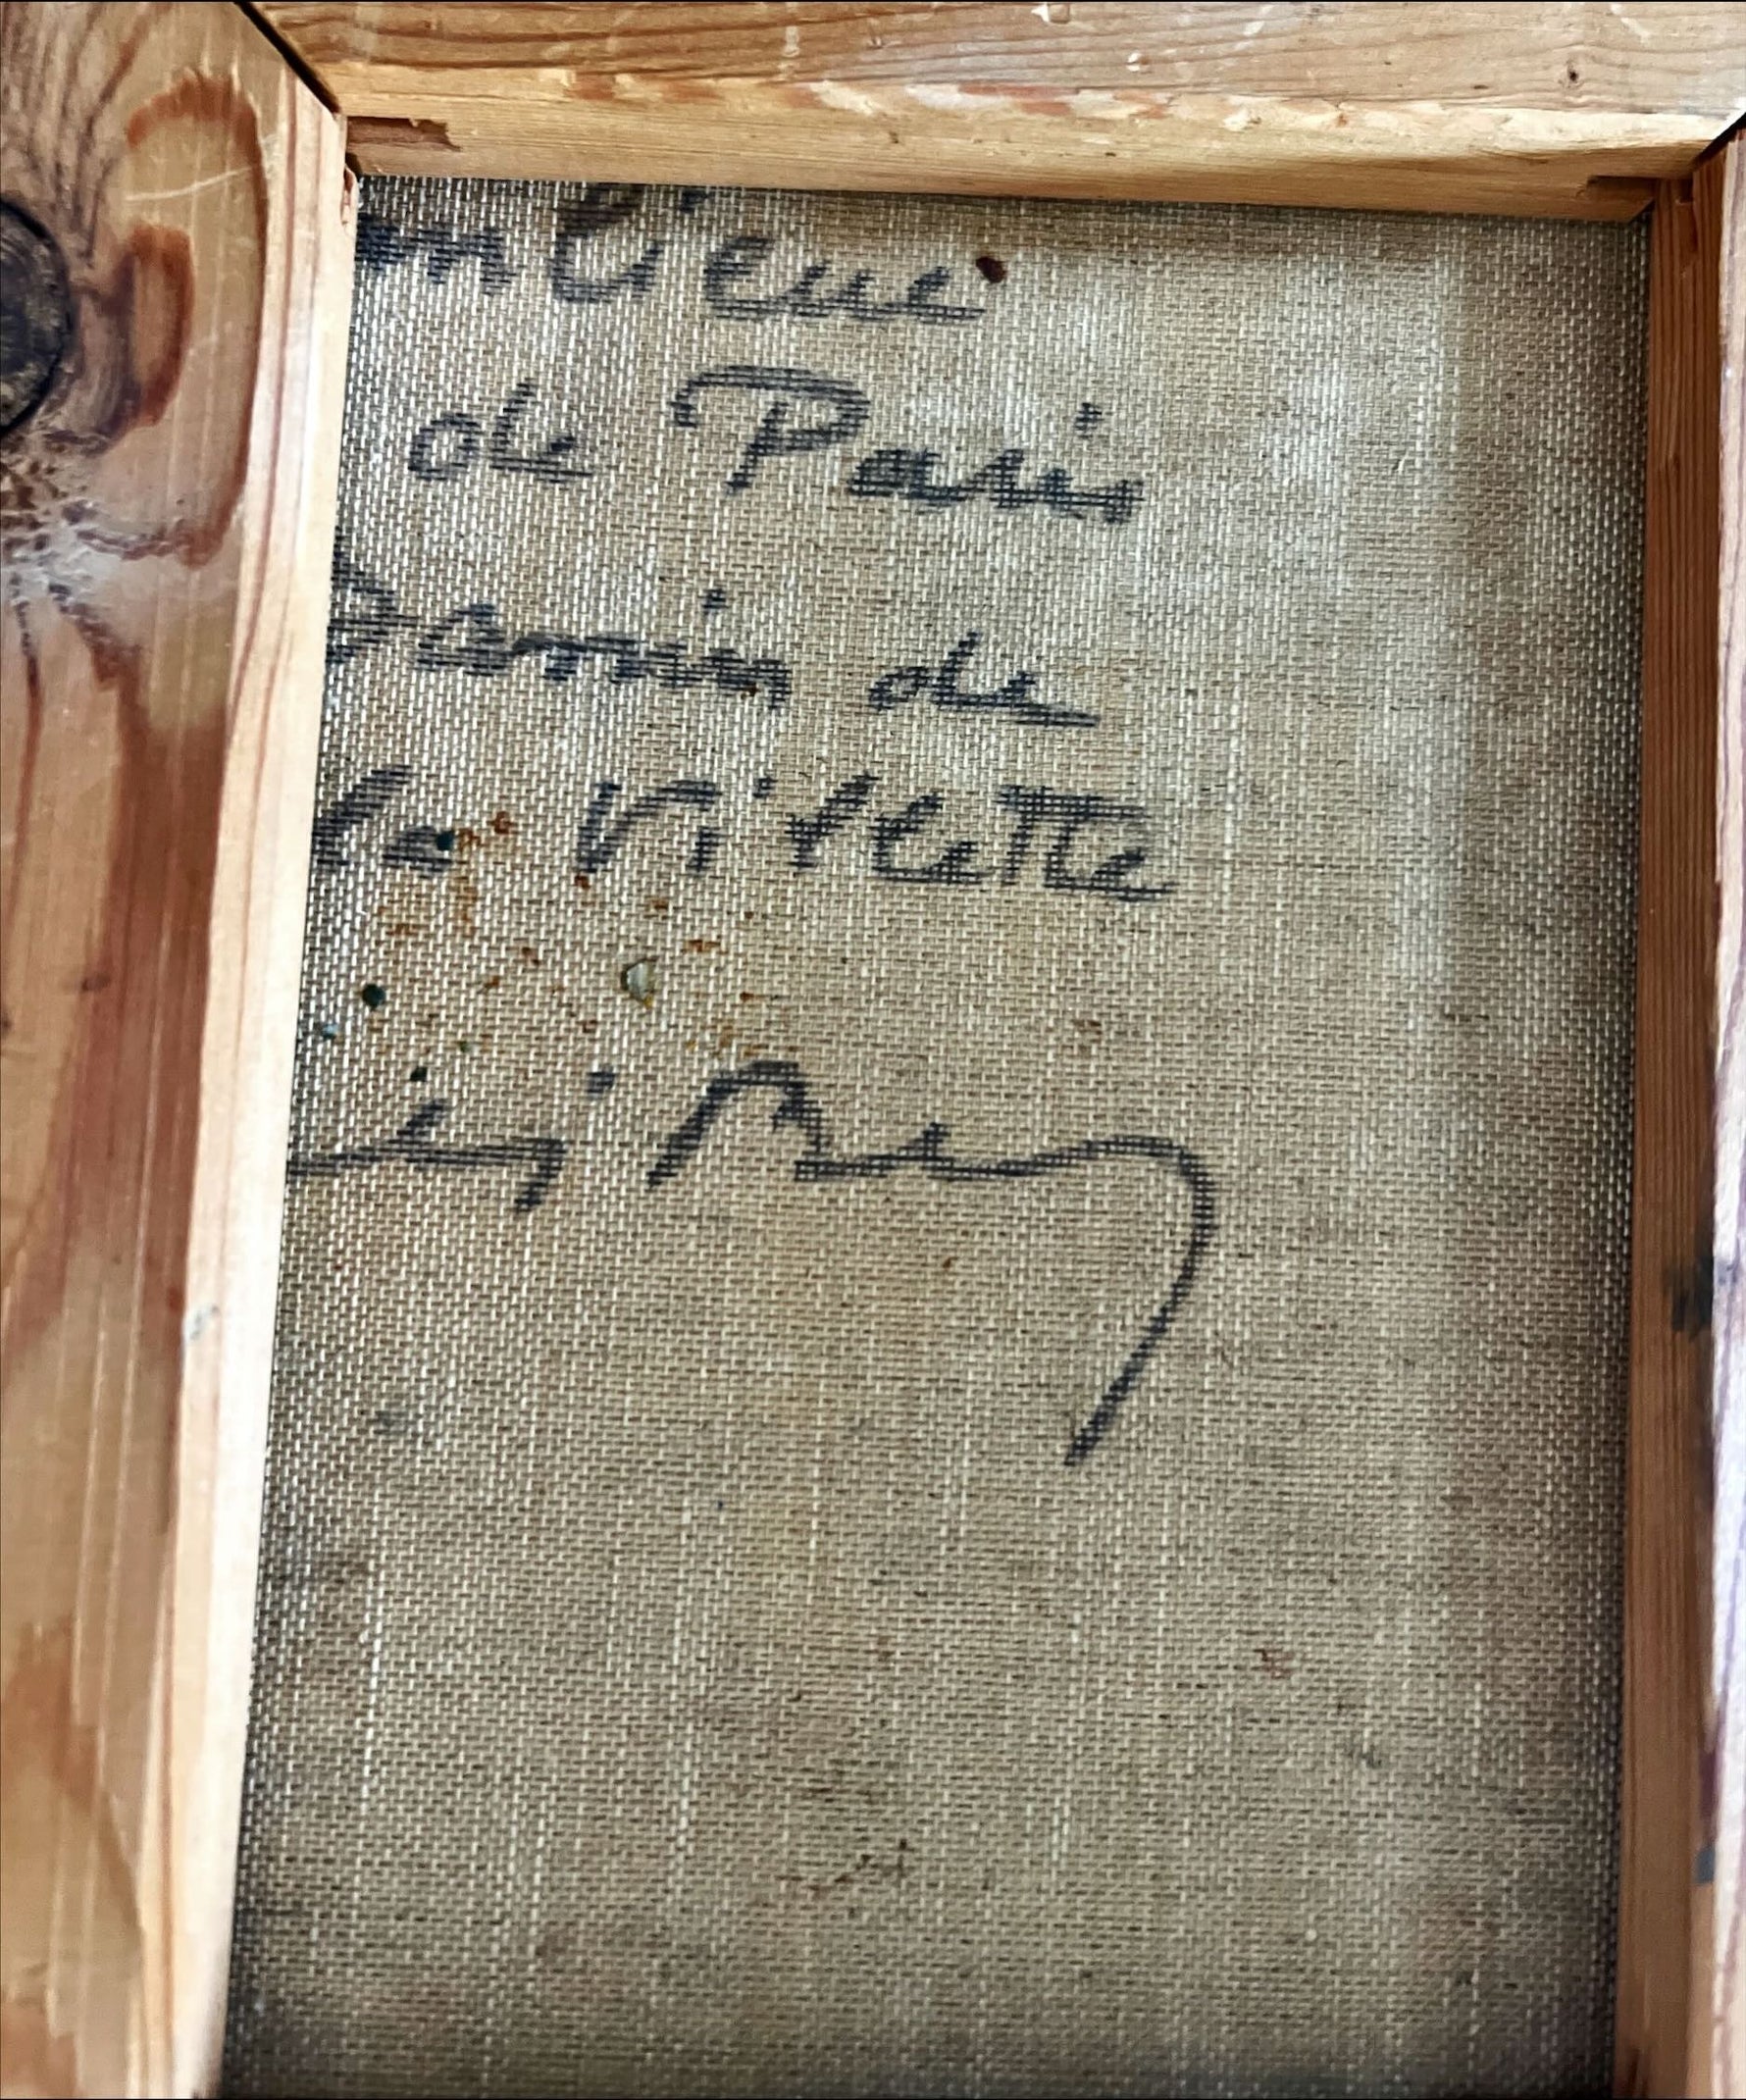 anlieue
de Paris
Bassin de
la Villette